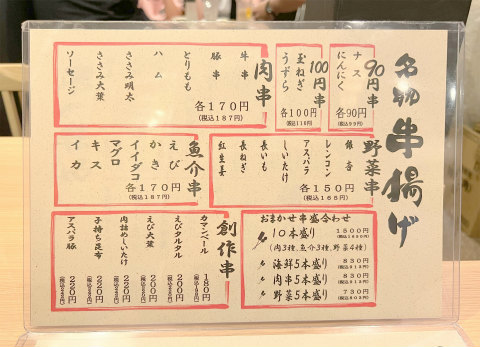 名物串揚げ
90円串
ナス
にんにく
各90円
(税込99円)
100円串
玉ねぎ
うずら
各100円
(税込110円)
肉串
牛串
豚串
とりもも
ハム
ささみ明太
ささみ大葉
ソーセージ
各170円
(税込187円)
野菜串
銀杏
レンコン
アスパラ
しいたけ
長いも
長ねぎ
紅生姜
各150円
(税込165円)
魚介串
えび
かき
イイダコ
マグロ
キス
イカ
各170円
(税込187円)
おまかせ串盛合わせ
10本盛り 1500円
(税込1650円)
(肉3種、魚介3種、野菜4種)
海鮮5本盛り 830円
(税込913円)
肉串5本盛り 830円
(税込913円)
野菜5本盛り 730円
(税込803円)
創作串
カマンベール 180円
えびタルタル 200円
えび大葉 200円
肉詰めしいたけ 220円
子持ち昆布 220円
アスパラ豚 220円